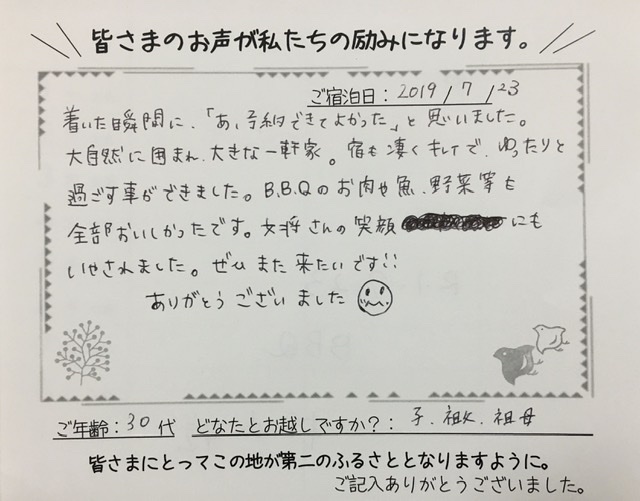 皆さまのお声が私たちの励みになります。
ご宿泊日：2019/7/23
着いた瞬間に、「あ、予約できてよかった」と思いました。
大自然に囲まれ、大きな一軒家。宿も凄くキレイで、ゆったりと
過ごす事ができました。B.B.Qのお肉や魚、野菜等も
全部おいしかったです。女将さんの笑顔にも
いやされました。ぜひまた来たいです!!
ありがとうございました
ご年齢：30代 どなたとお越しですか？：子、祖父、祖母
皆さまにとってこの地が第二のふるさととなりますように。
ご記入ありがとうございました。